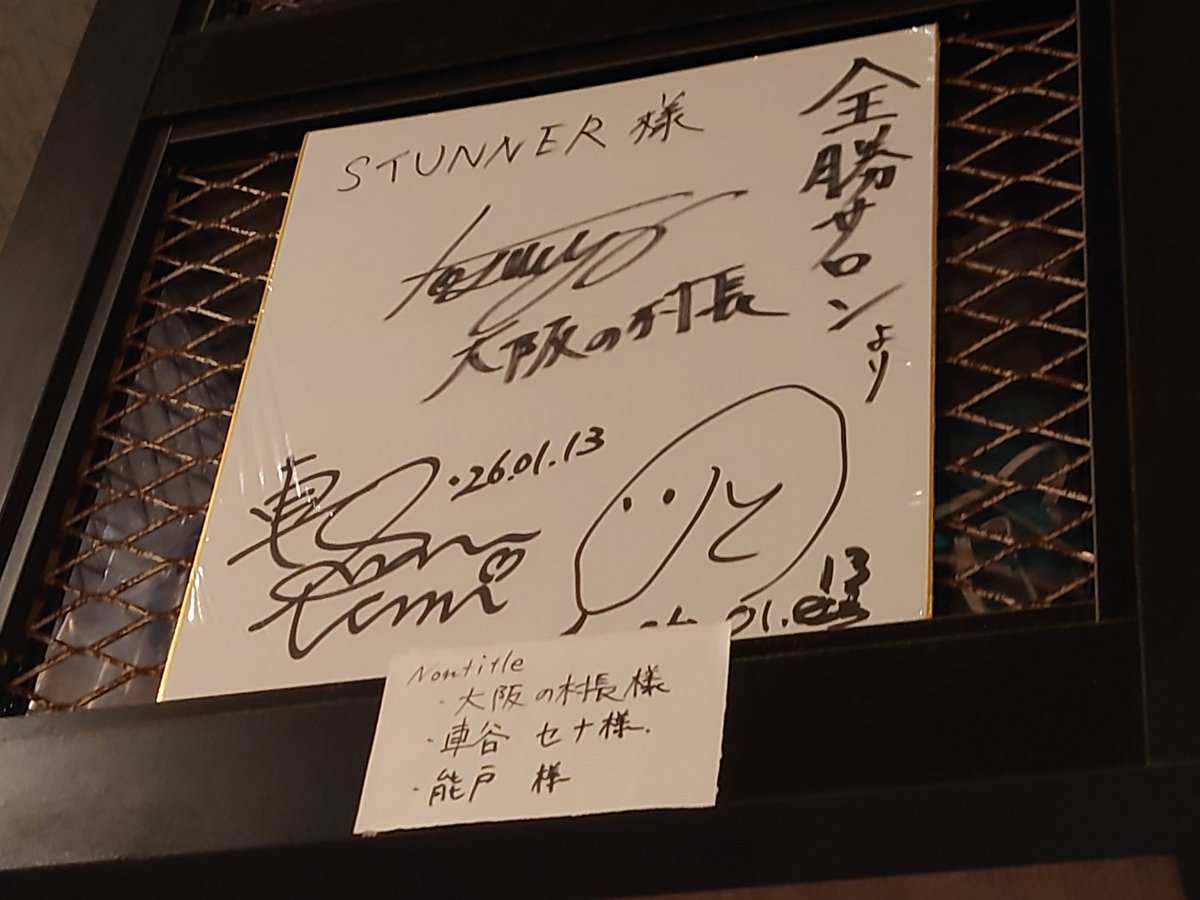 全勝サロンより
STUNNER 様
大阪の村長
'26.01.13
26.01.13
Nontitle
・大阪の村長様
・車谷 セナ様.
・能戸 様